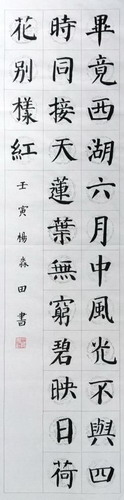 畢竟西湖六月中風光不與四
時同接天蓮葉無窮碧映日荷
花別樣紅
壬寅楊森田書